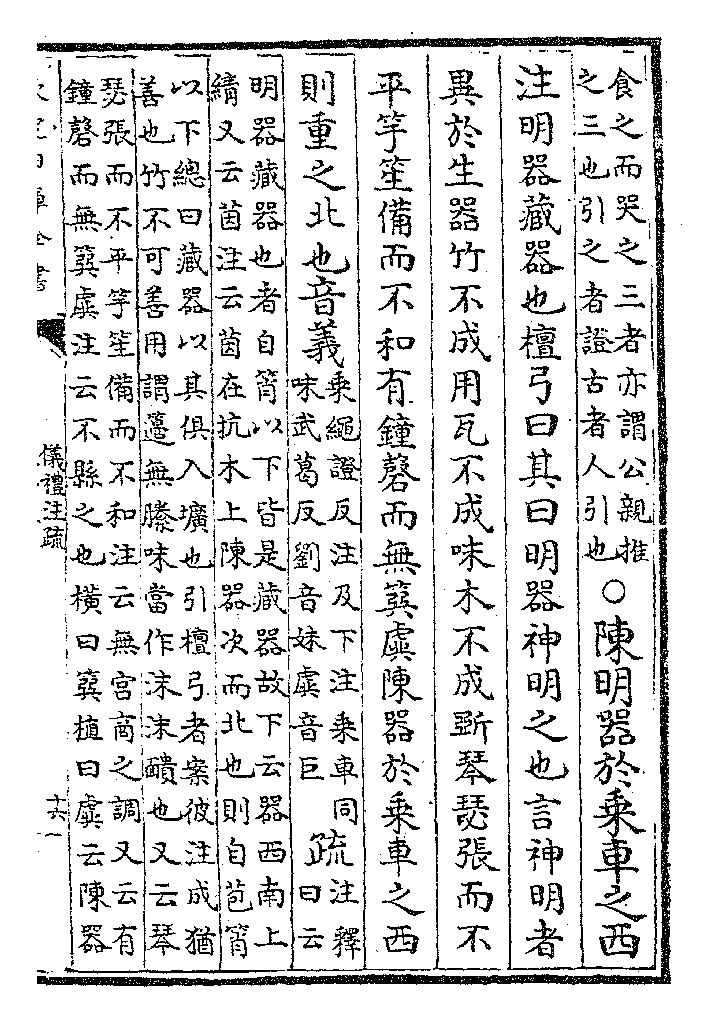 食之而哭之三者亦謂公親推
之三也引之者證古者人引也
○陳明器於乘車之西
注明器藏器也檀弓曰其曰明器神明之也言神明者
異於生器竹不成用瓦不成味木不成斲琴瑟張而不
平竽笙備而不和有鐘磬而無簨虡陳器於乘車之西
則重之北也音義
乘繩證反注及下注乘車同
味武葛反劉音妹虡音巨
疏
注釋
曰云
明器藏器也者自筲以下皆是藏器故下云器西南上
綪又云茵注云茵在抗木上陳器次而北也則自苞筲
以下總曰藏器以其俱入壙也引檀弓者案彼注成猶
善也竹不可善用謂籩無縢味當作沬沬靧也又云琴
瑟張而不平竽笙備而不和注云無宮商之調又云有
鐘磬而無簨虡注云不縣之也橫曰簨植曰虡云陳器
儀禮注疏
十六